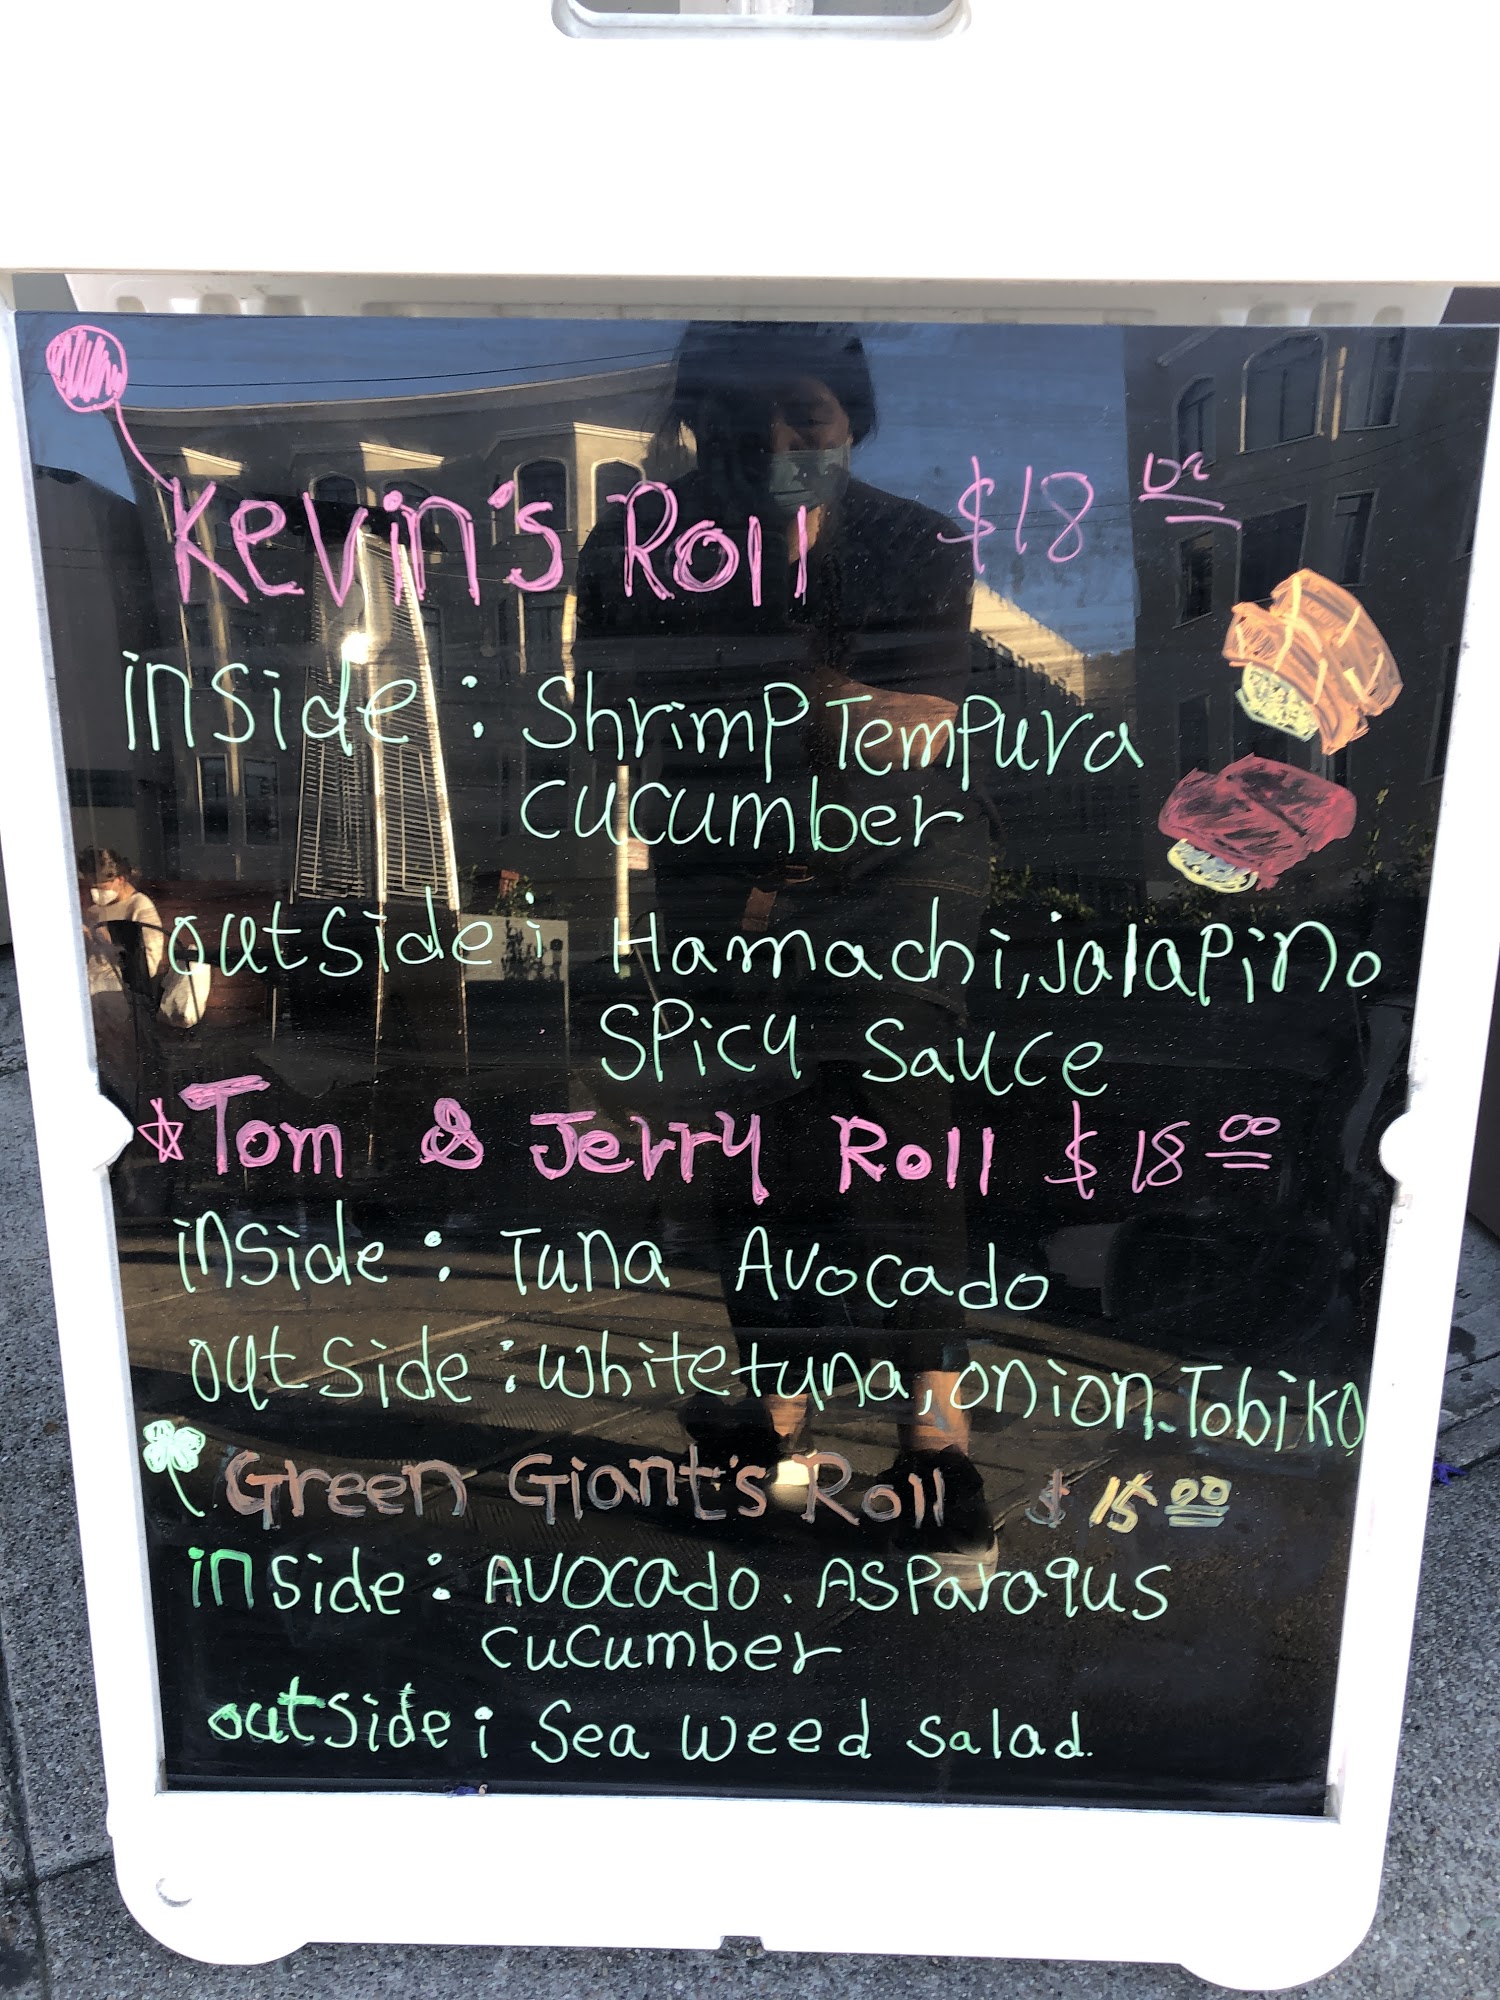 Kevin's Roll $18 00
inside: Shrimp Tempura
cucumber
outside: Hamachi, jalapino
Spicy Sauce
Tom & Jerry Roll $18 00
inside: Tuna Avocado
outside: white tuna, onion. Tobiko
Green Giant's Roll $15 00
inside: Avocado. Asparagus
cucumber
outside: Sea weed salad.